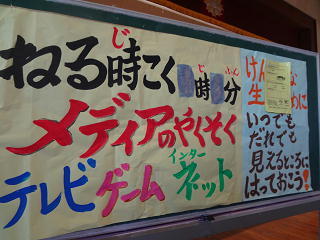 ねる時こく 時 分
じ じ ふん
メディアのやくそく
テレビ ゲーム ネット
インター
けん な
生 めに
いつでも
だれでも
見えるところに
はっておこう!